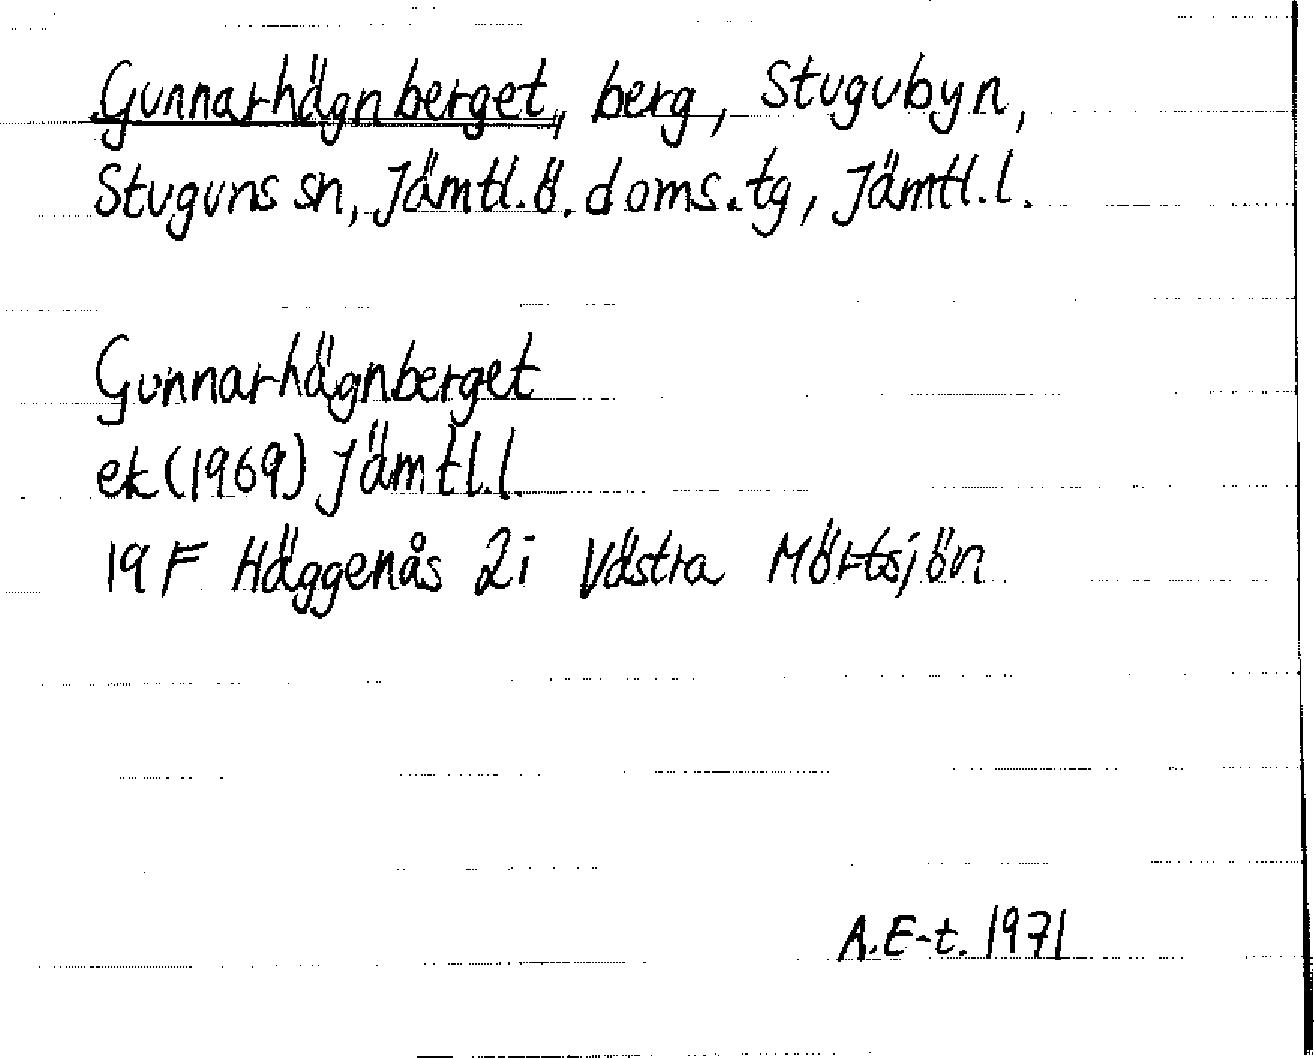 Gunnarhägnberget, berg, Stugubyn,
Stuguns sn, Jämtl.ö.doms.tg, Jämtl.l.
Gunnarhägnberget
ek (1969) Jämtl.l.
19 F Häggenås 2i Västra Mörtsjön
A.E-t. 1971